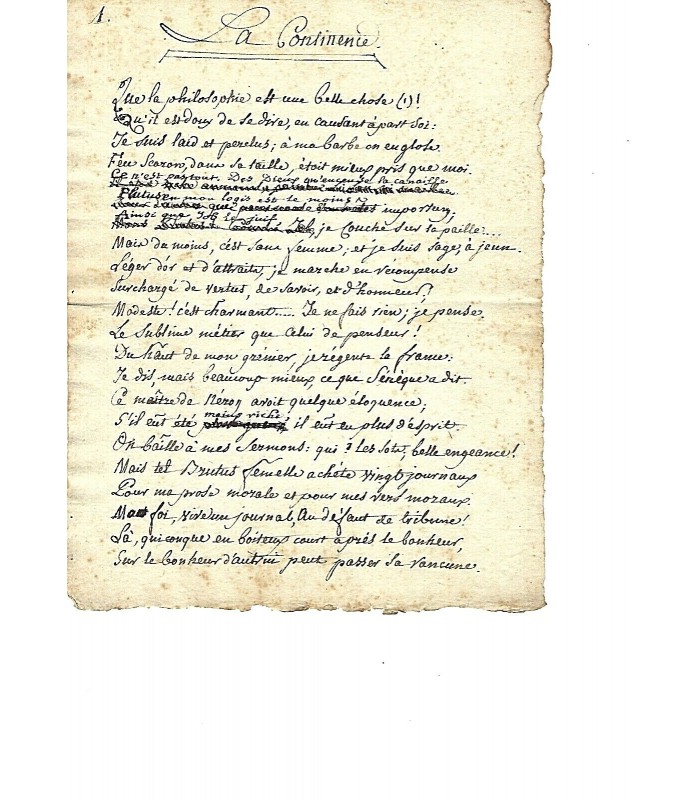 1.
La Continence.
Que la philosophie est une belle chose (1)!
Qu'il est doux de se dire, en causant à part soi:
Je suis laid et perclus; à ma barbe on englose.
Feu Scaron, dans sa taille, étoit mieux pris que moi.
Ce n'est pas tout. Des Dieux qu'encense la canaille
Plutus en mon logis est le moins
importun;
Ainsi que Job le juif
je couche sur la paille....
Mais du moins, c'est sans femme; et je suis sage, à jeun.
Léger d'or et d'attraits, je marche en récompense
Surchargé de vertus, de savoir, et d'honneur;
Modeste! c'est charmant..... Je ne fais rien; je pense.
Le sublime métier que celui de penseur!
Du haut de mon grénier je régente la france:
Je dis, mais beaucoup mieux, ce que Sénèque a dit.
Ce maître de Néron avoit quelque éloquence;
moins riche
S'il eût été il eût eu plus d'esprit.
On bâille à mes Sermons: qui? les sots, belle engeance!
Mais tel Brutus femelle achète vingt journaux
Pour ma prose morale et pour mes vers moraux.
Ma foi, vive un journal, au défaut de tribune!
Là, quiconque en boiteux court après le bonheur,
Sur le bonheur d'autrui peut passer sa rancune.